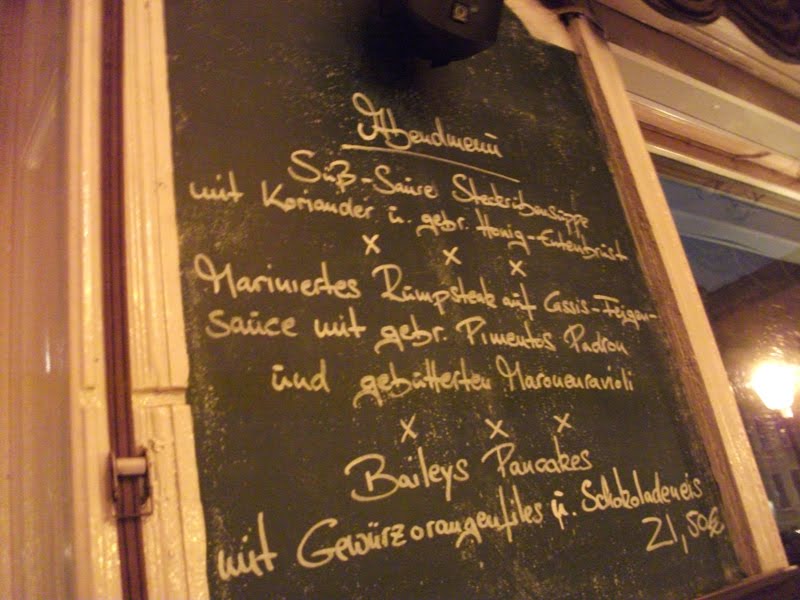 Abendmenü
Süß-Saure Steckrübensuppe
mit Koriander u. gebr. Honig-Entenbrust
x x x
Mariniertes Rumpsteak auf Cassis-Feigen-
sauce mit gebr. Pimentos Padron
und gebutterten Maronenravioli
x x x
Baileys Pancakes
mit Gewürzorangenfiles u. Schokoladeneis
21,50€